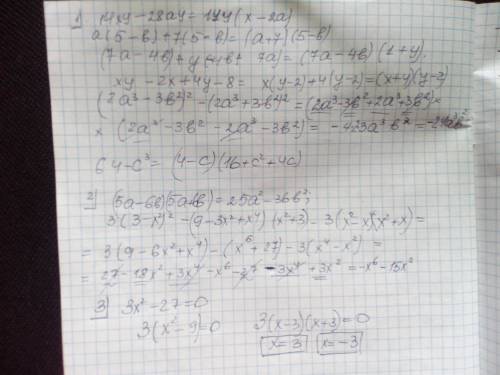 1) 14xy - 28ay = 14y(x - 2a)
a(5-b) + 7(5-b) = (a+7)(5-b)
(7a - 4b) + y 7a) = (7a - 4b)(1+y).
xy - 2x + 4y - 8 = x(y-2) + 4(y-2) = (x+y)(y-2)
(2a³ - 3b²)² - (2a³ + 3b²)² = (2a³ - 3b² + 2a³ + 3b²) ×
× (2a³ - 3b² - 2a³ - 3b²) = = -24a³b²
64 - c³ = (4-c)(16 + c² + 4c)
2) (5a - 6b)(5a + 6b) = 25a² - 36b²;
3(3-x²)² - (9 - 3x² + x⁴)(x² + 3) - 3(x² - x)(x² + x) =
= 3(9 - 6x² + x⁴) - (x⁶ + 27) - 3(x⁴ - x²) =
= 27 - 18x² + 3x⁴ - x⁶ - 27 - 3x⁴ + 3x² = -x⁶ - 15x²
3) 3x² - 27 = 0
3(x² - 9) = 0 3(x-3)(x+3) = 0
x = 3 x = -3